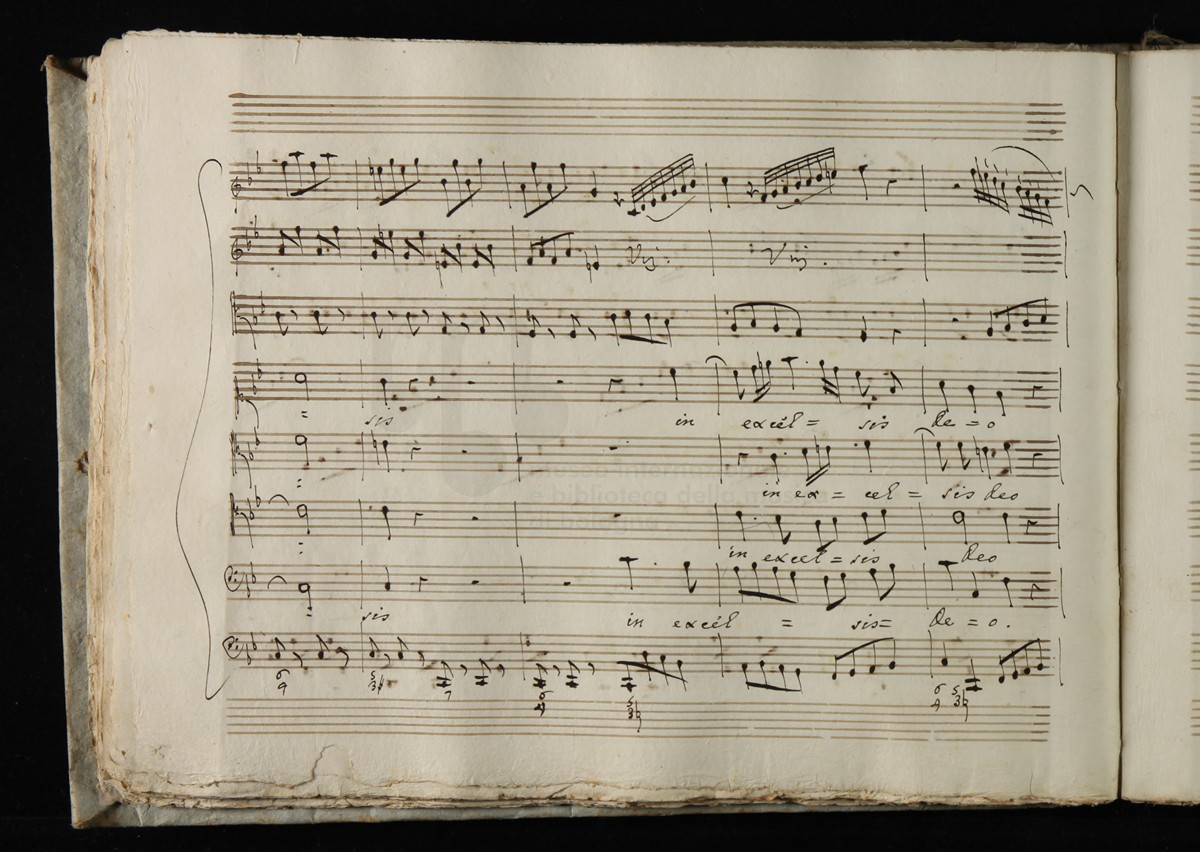 Vnj: Vnj.
sis in excel = sis de = o
in ex = cel = sis deo
in excel = sis deo
sis in excel = sis = de = o.
6 5 7 6 5 6 5
4 3♮ 4 3♮ 4 3♮
museo internazionale
e biblioteca della musica
di bologna